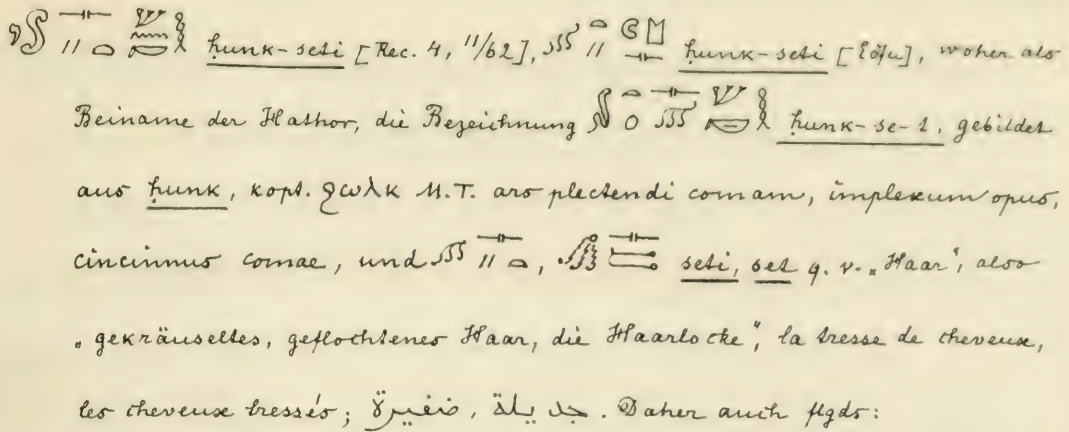 ḥunk-seti [Rec. 4, 11/62], ḥunk-seti [Edfu], woher als
Beiname der Hathor, die Bezeichnung ḥunk-se-t, gebildet
aus ḥunk, kopt. ϩωλκ M.T. ars plectendi comam, implexum opus,
cincinnus comae, und seti, set q. v. „Haar", also
„gekräuseltes, geflochtenes Haar, die Haarlocke", la tresse de cheveux,
les cheveux tressés; ضفيرة, جديلة. Daher auch flgds: